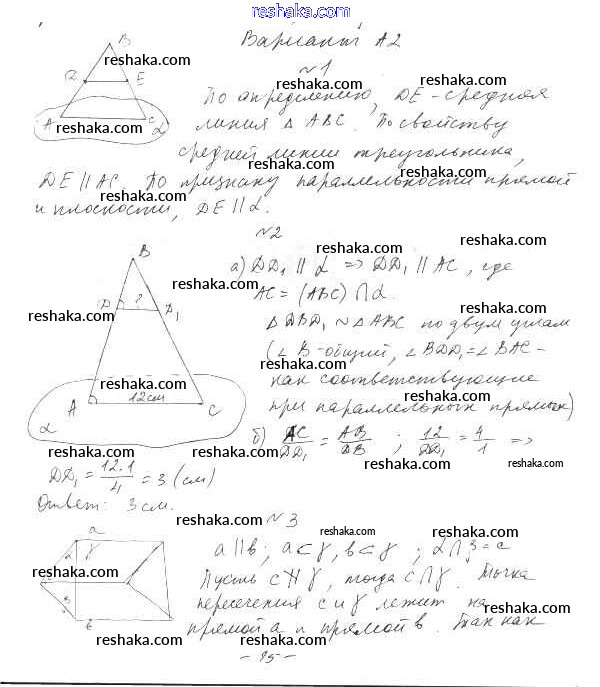 reshaka.com
Вариант А2
№1
По определению, DE - средняя
линия △ ABC. По свойству
средней линии треугольника,
DE ∥ AC. По признаку параллельности прямой
и плоскости, DE ∥ α.
B
D E
A C α
№2
а) DD₁ ∥ α ⇒ DD₁ ∥ AC, где
AC = (ABC) ∩ α.
△ DBD₁ ∾ △ ABC по двум углам
(∠ B - общий, ∠ BDD₁ = ∠ BAC -
как соответствующие
при параллельных прямых)
B
D ? D₁
A 12 см C
α
б) AC/DD₁ = AB/DB ; 12/DD₁ = 4/1 ⇒
DD₁ = 12·1/4 = 3 (см)
Ответ: 3 см.
№3
a ∥ b; a ⊂ γ, b ⊂ γ; α ∩ β = c
Пусть c ∦ γ, тогда c ∩ γ. Точка
пересечения c и γ лежит на
прямой a и прямой b. Так как
a
γ
b
- 95 -
reshaka.com
reshaka.com
reshaka.com
reshaka.com
reshaka.com
reshaka.com
reshaka.com
reshaka.com
reshaka.com
reshaka.com
reshaka.com
reshaka.com
reshaka.com
reshaka.com
reshaka.com
reshaka.com
reshaka.com
reshaka.com
reshaka.com
reshaka.com
reshaka.com
reshaka.com
reshaka.com